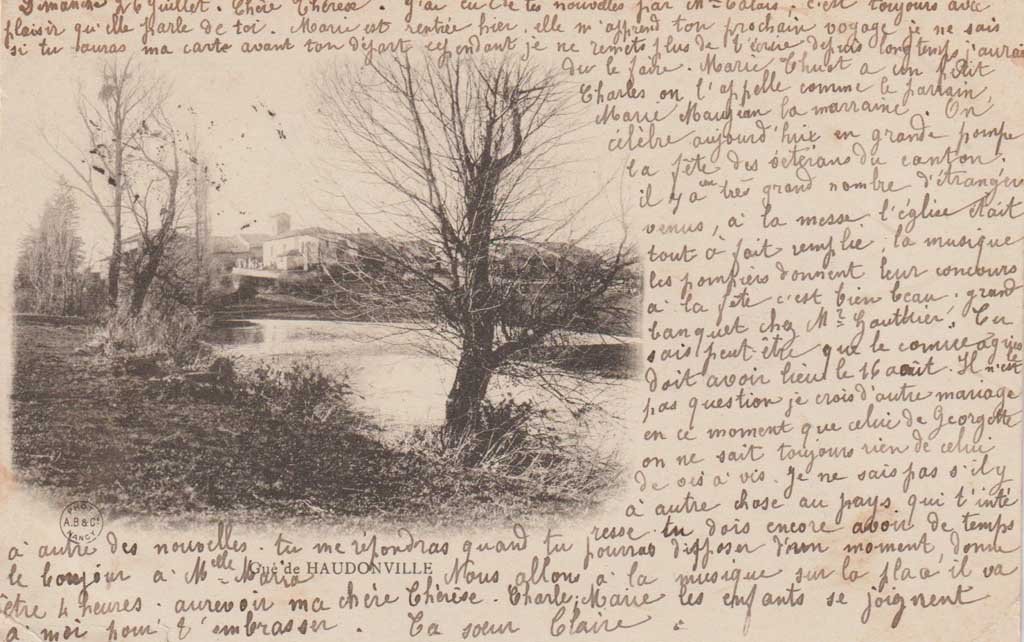 Dimanche 26 juillet. Chère Thérèse. j'ai eu de tes nouvelles par Mme Calais. c'est toujours avec
plaisir qu'elle parle de toi. Marie est rentrée hier, elle m'apprend ton prochain voyage, je ne sais
si tu auras ma carte avant ton départ cependant je ne remets plus de t'écrire depuis longtemps j'aurai
du le faire. Marie Thust a un petit
Charles on l'appelle comme le parrain,
Marie Maujean la marraine. On
célèbre aujourd'hui en grande pompe
la fête des vétérans du canton.
il y a un très grand nombre d'étrangers
venus, à la messe l'église était
tout à fait remplie, la musique
les pompiers donnent leur concours
à la fête c'est bien beau, grand
banquet chez Mr Gauthier. Tu
sais peut-être que le comice agricole
doit avoir lieu le 16 août. Il n'est
pas question je crois d'autre mariage
en ce moment que celui de Georgette
on ne sait toujours rien de celui
de vis à vis. Je ne sais pas s'il y
à autre chose au pays qui t'inté
resse. tu dois encore avoir de temps
à autre des nouvelles. tu me répondras quand tu pourras disposer d'un moment, donne
le bonjour à Melle Maria Nous allons à la musique sur la place il va
être 4 heures. aurevoir ma chère Thérèse. Charle, Marie les enfants se joignent
a moi pour t'embrasser. Ta sœur Claire.
Gué de HAUDONVILLE
PHOT
A.B & Cie
NANCY